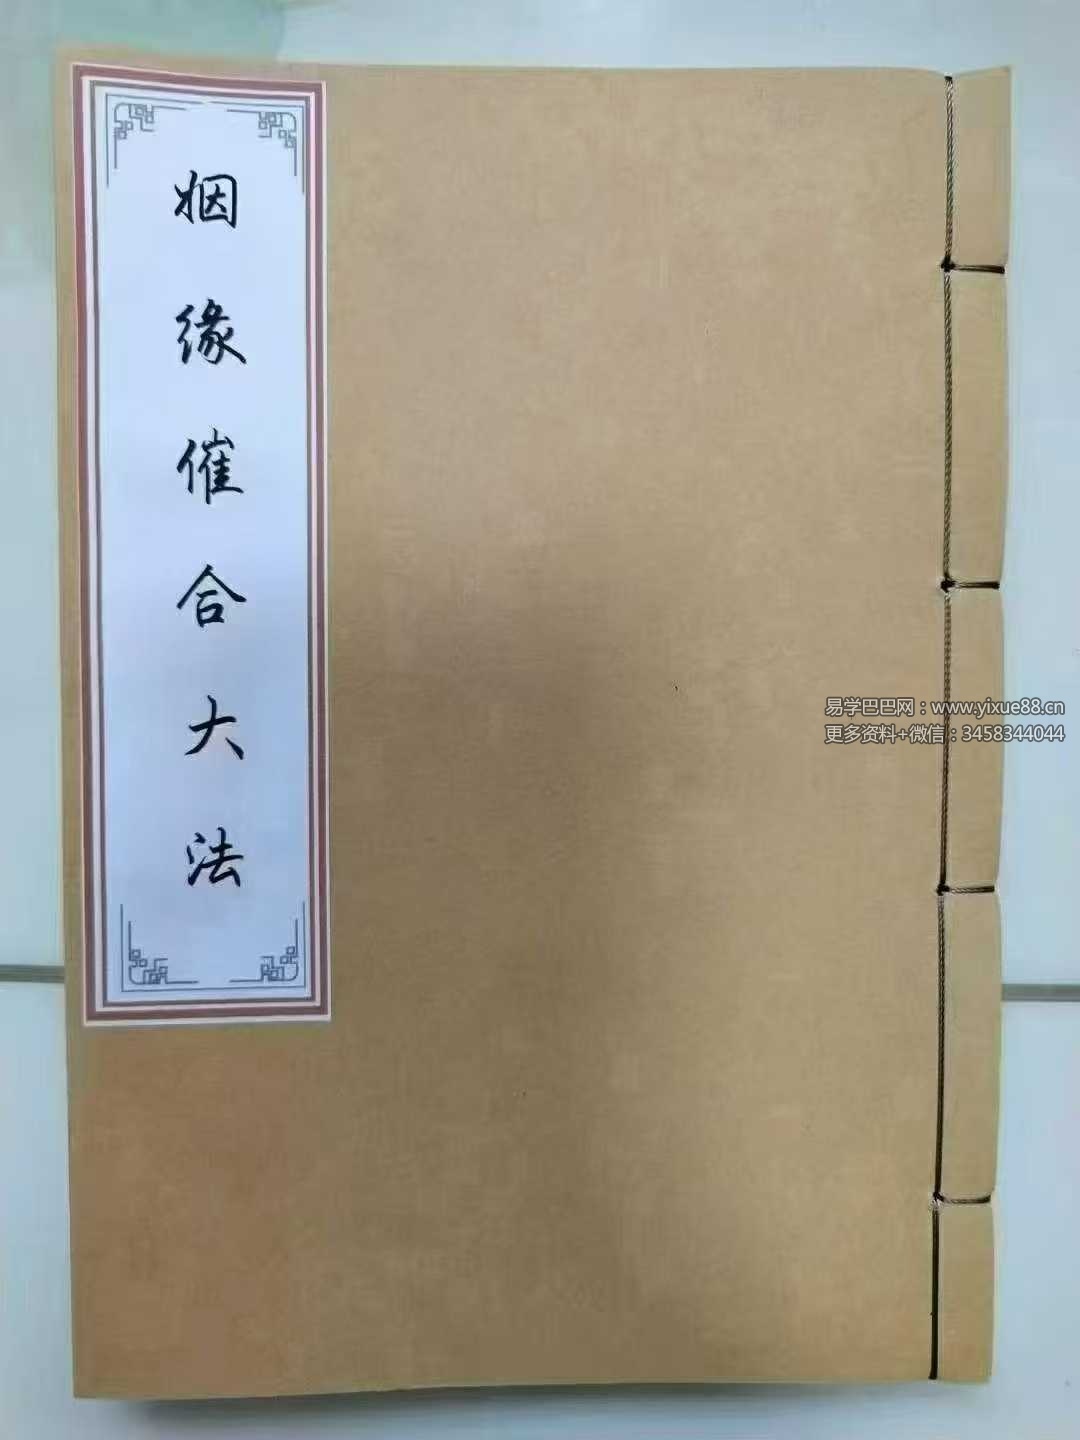 姻缘催合大法
易学巴巴网：www.yixue88.cn
更多资料+微信：3458344044